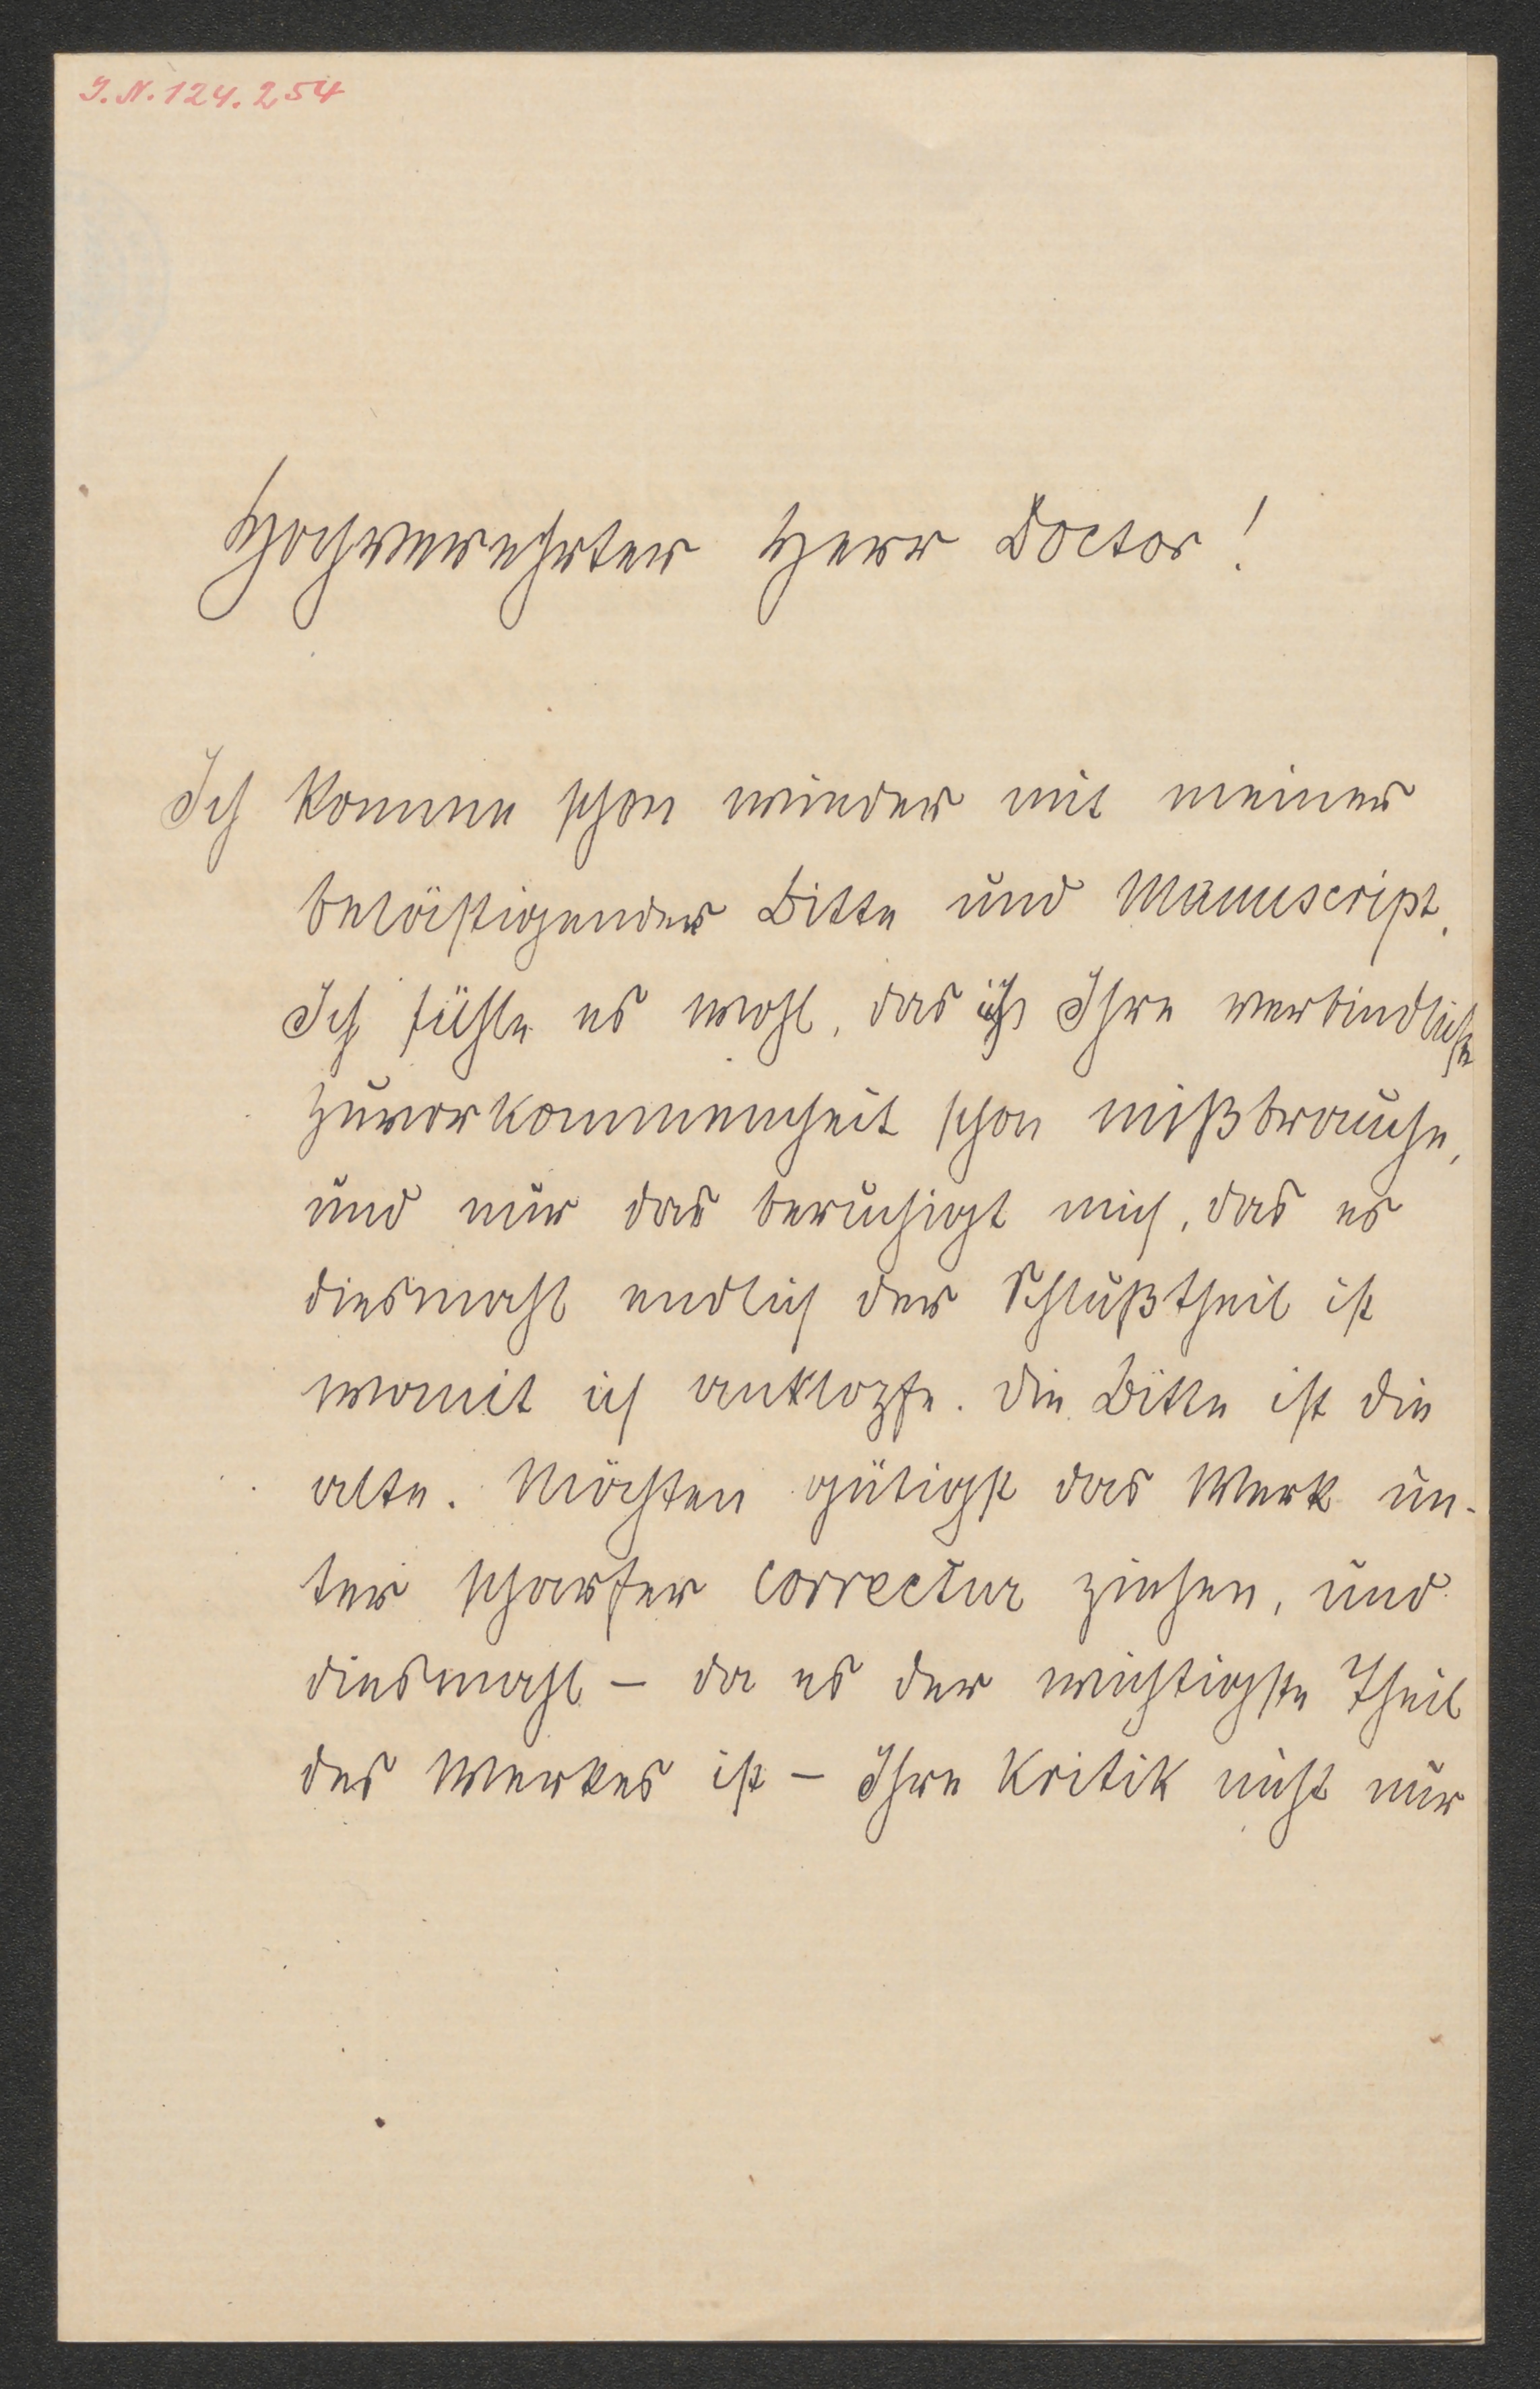 J. N. 124.254
Hochverehrter Herr Doctor!
Ich komme schon wieder mit meiner
belästigender Bitte und Manuscript.
Ich fühle es wohl, das ich Ihre verbindliche
Zuvorkommenheit schon mißbrauche,
und nur das beruhigt mich, das es
diesmahl endlich der Schlußtheil ist
womit ich anklopfe. Die Bitte ist die
alte. Möchten gütigst das Werk un-
ter scharfer Correctur ziehen, und
diesmahl – da es der wichtigste Theil
des Werkes ist – Ihre Kritik nicht nur